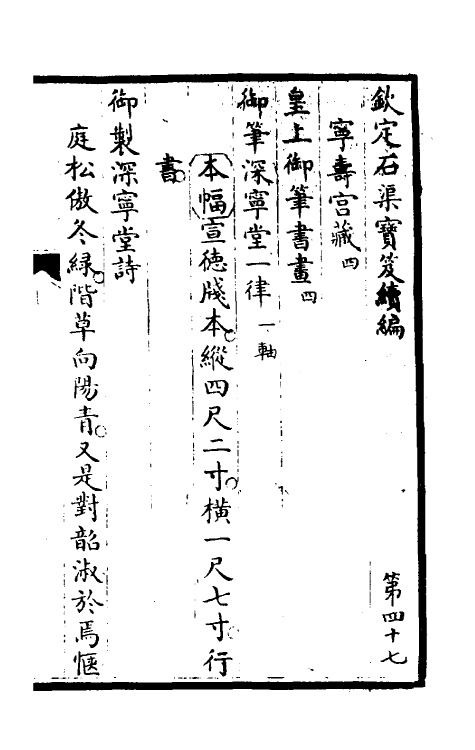 欽定石渠寶笈續編 第四十七
寧壽宮藏四
皇上御筆書畫四
御筆深寧堂一律 一軸
本幅宣德牋本縱四尺二寸橫一尺七寸行
書
御製深寧堂詩
庭松傲冬綠階草向陽青又是對韶淑於焉愜